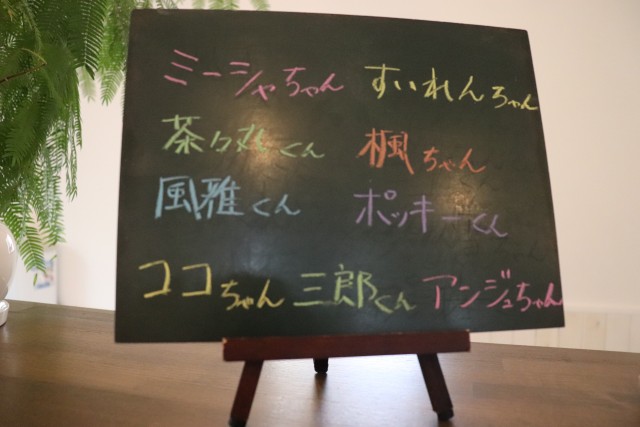 ミーシャちゃん すいれんちゃん
茶々丸くん 楓ちゃん
風雅くん ポッキーくん
ココちゃん 三郎くん アンジュちゃん